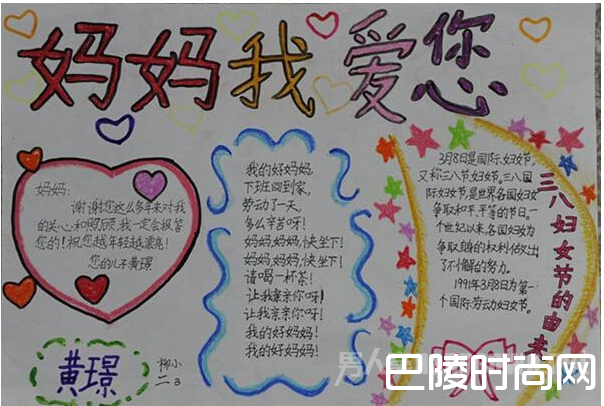 妈妈我爱您
妈妈:
谢谢您这么多年来对我
的关心和照顾,我一定会报答
您的!祝您越年轻越漂亮!
您的儿子黄璟
黄璟
柳小
二3
我的好妈妈,
下班回到家,
劳动了一天,
多么辛苦呀!
妈妈,妈妈,快坐下!
妈妈,妈妈,快坐下!
请喝一杯茶!
让我亲亲你呀!
让我亲亲你呀!
我的好妈妈!
我的好妈妈!
3月8日是国际妇女节,
又称三八节妇女节。三八国
际妇女节,是世界各国妇女
争取和平、平等的节日。一
个世纪以来,各国妇女为
争取自身的权利依次出
了不懈的努力。
1991年3月8日为第一
个国际劳动妇女节。
三八妇女节的由来
男人
巴陵时尚网